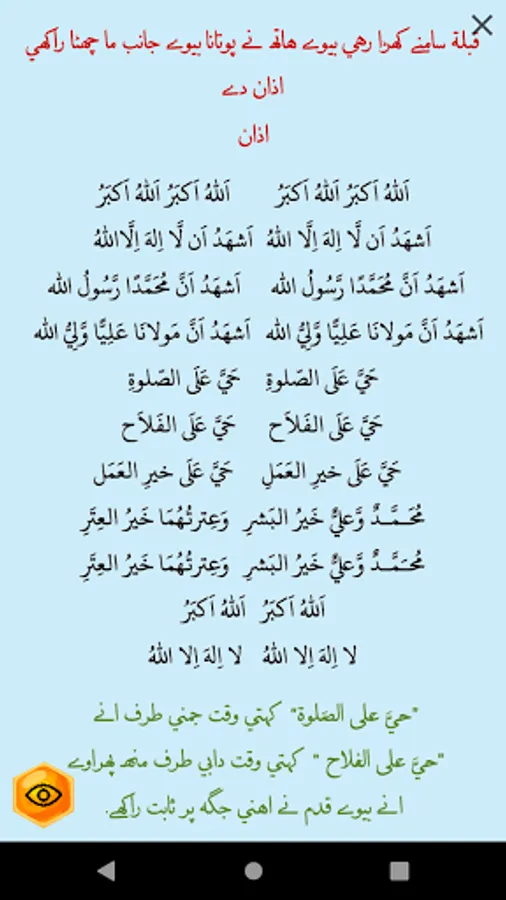 قبلة سامنے كهرا رهي بيوے هاتھ نے پوتانا بيوے جانب ما چهٹا راكهي
اذان دے
اذان
اَللهُ اَكبَرُ اَللهُ اَكبَرُ اَللهُ اَكبَرُ اَللهُ اَكبَرُ
اَشهَدُ اَن لَّا اِلهَ اِلَّا اللهُ اَشهَدُ اَن لَّا اِلهَ اِلَّاللهُ
اَشهَدُ اَنَّ مُحَمَّدًا رَّسُولُ الله اَشهَدُ اَنَّ مُحَمَّدًا رَّسُولُ الله
اَشهَدُ اَنَّ مَولانَا عَلِيًّا وَّلِيُّ الله اَشهَدُ اَنَّ مَولانَا عَلِيًّا وَّلِيُّ الله
حَيَّ عَلَى الصَّلوةِ حَيَّ عَلَى الصَّلوةِ
حَيَّ عَلَى الفَلاَح حَيَّ عَلَى الفَلاَح
حَيَّ عَلَى خيرِ العَمَلِ حَيَّ عَلَى خيرِ العَمَل
مُحَمَّدٌ وَّعليٌّ خَيرُ البَشرِ وَعِترتُهُمَا خَيرُ العِتَرِ
مُحَمَّدٌ وَّعليٌّ خَيرُ البَشرِ وَعِترتُهُمَا خَيرُ العِتَرِ
اَللهُ اَكبَرُ اَللهُ اَكبَرُ
لا اِلهَ اِلا اللهُ لا اِلهَ اِلا اللهُ
"حيَّ على الصَلوة" كهتي وقت جمني طرف انے
"حيَّ على الفلاح " كهتي وقت دابي طرف منھ پھراوے
انے بيوے قدم نے اهني جگه پر ثابت راكھے.